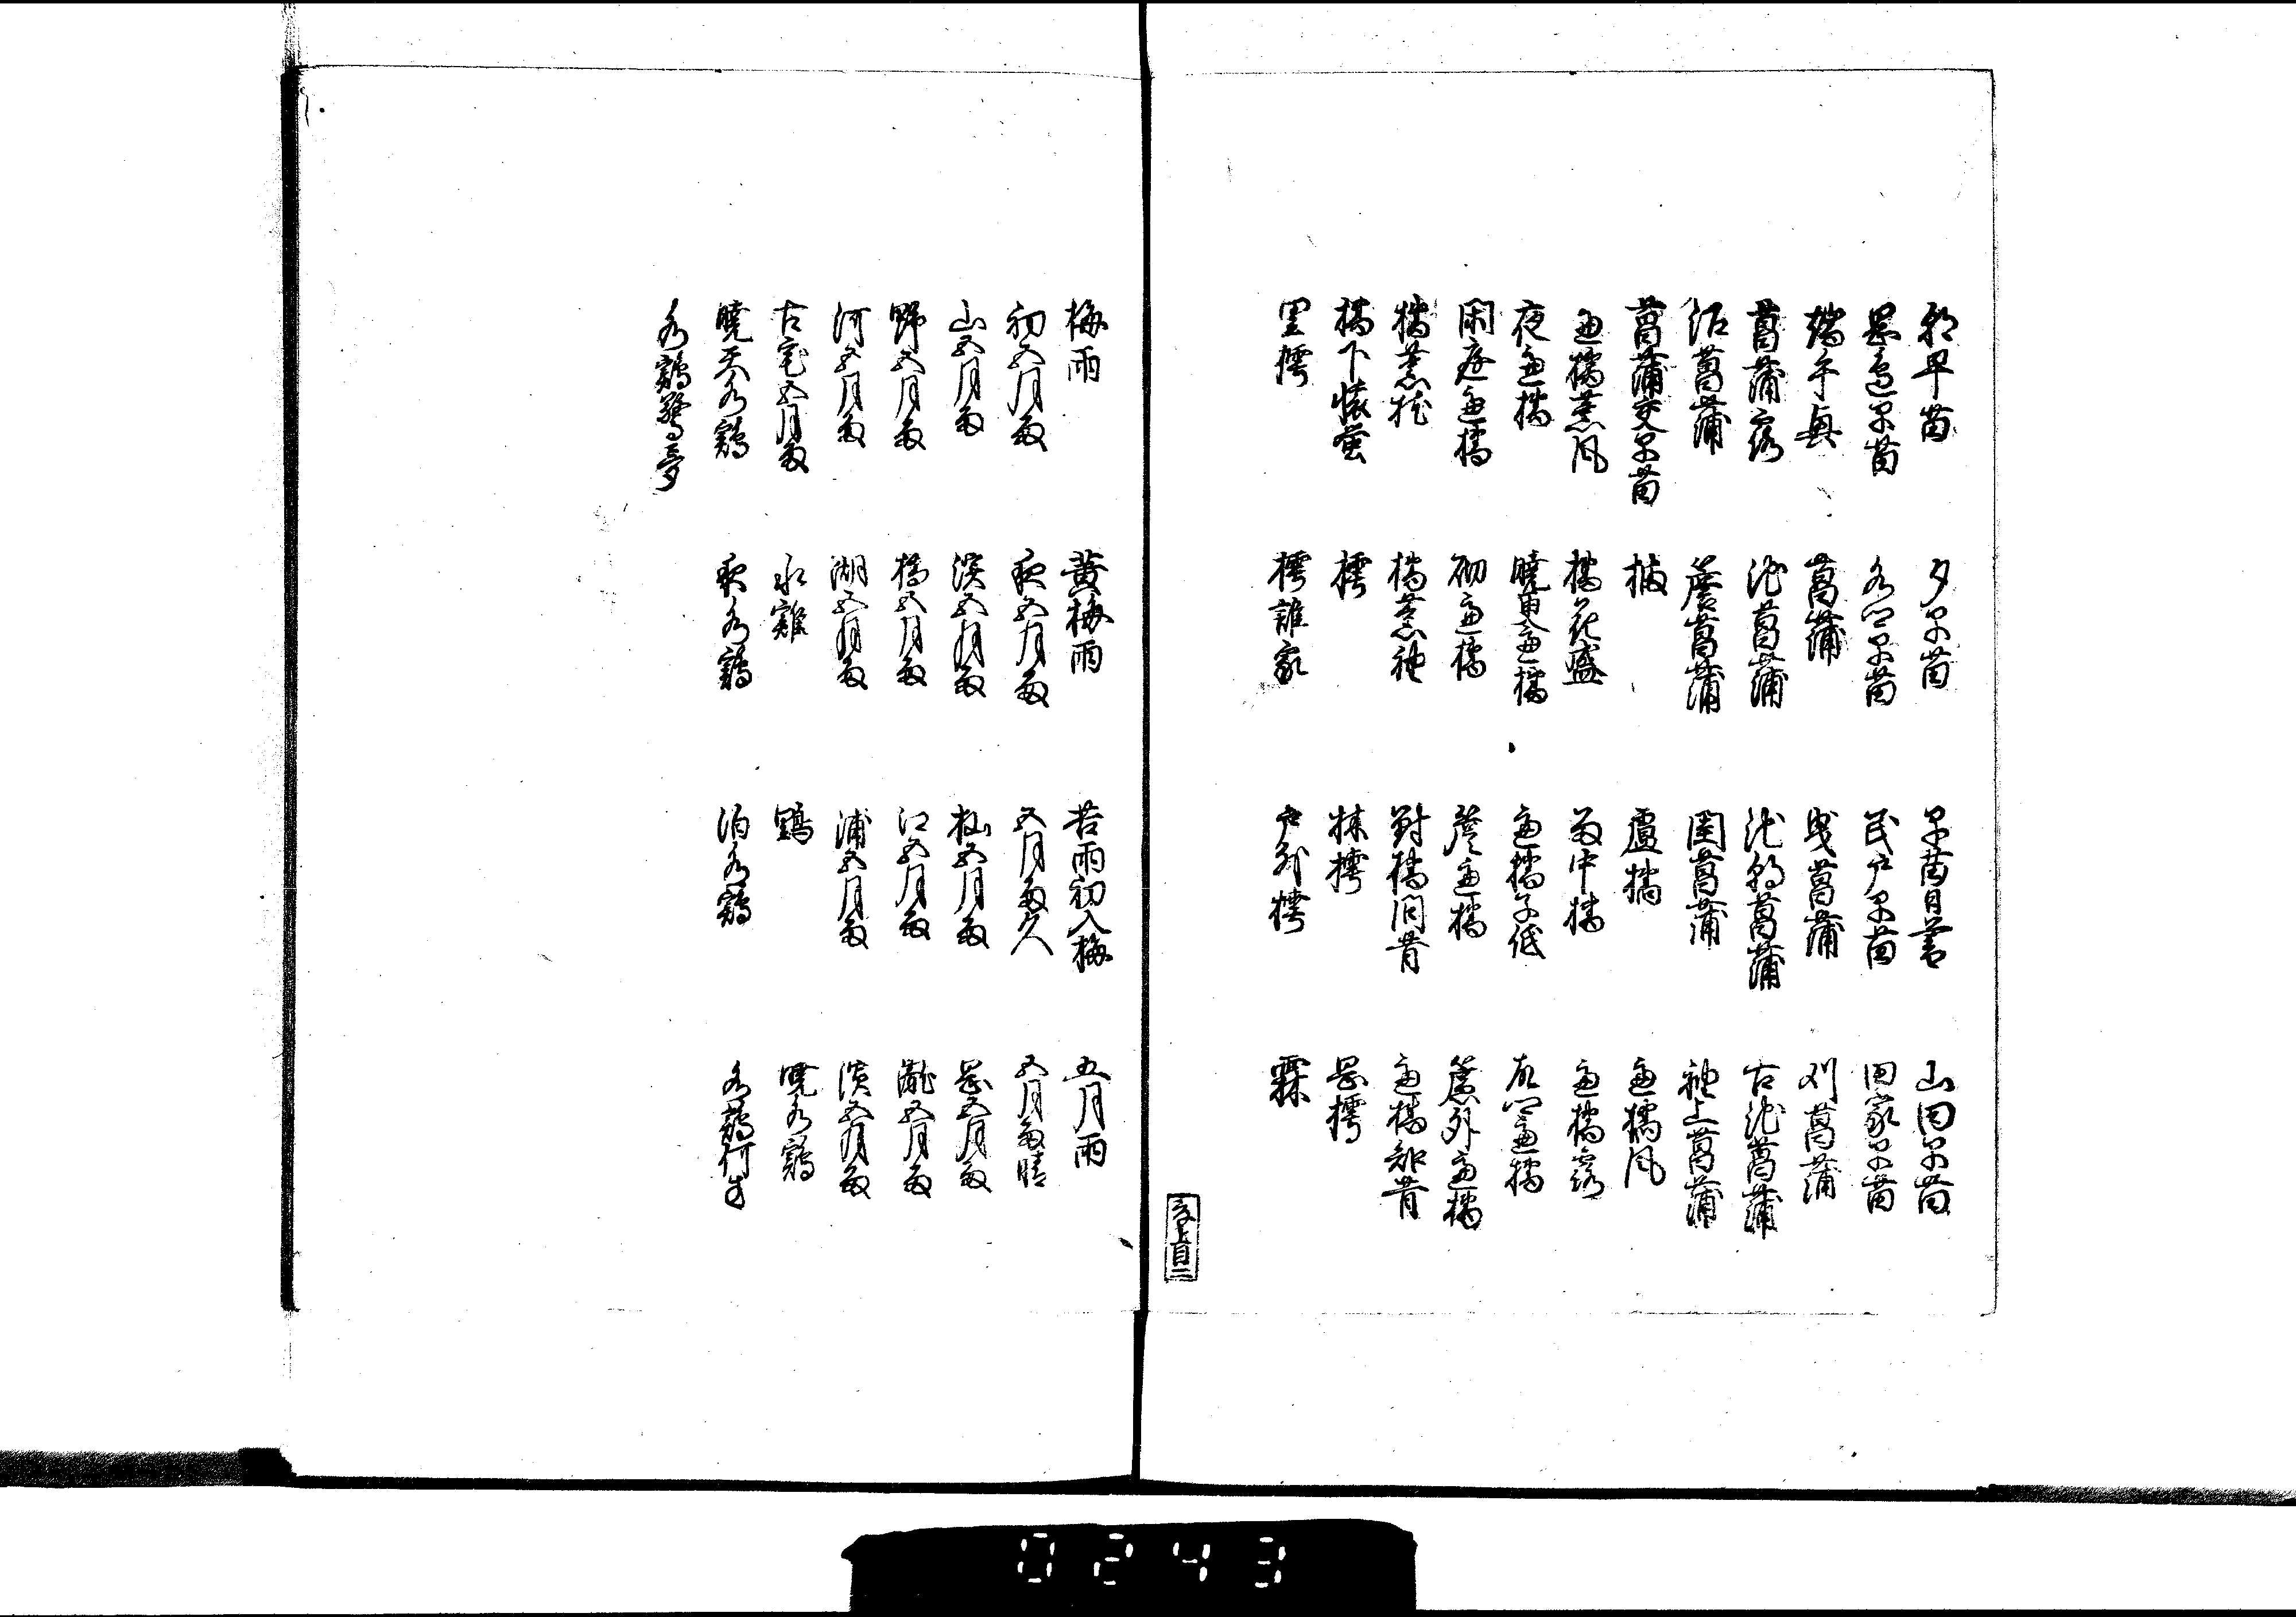 朝早苗 夕早苗 早苗日暮 山田早苗
岡邊早苗 水郷早苗 民戸早苗 田家早苗
端午興 菖蒲 曳菖蒲 刈菖蒲
菖蒲露 池菖蒲 池朝菖蒲 古池菖蒲
沼菖蒲 簷菖蒲 閨菖蒲 袖上菖蒲
菖蒲交早苗 橘 盧橘 盧橘風
盧橘薫風 橘花盛 雨中橘 盧橘露
夜盧橘 暁更盧橘 盧橘子低 故郷盧橘
閑庭盧橘 砌盧橘 簷盧橘 簾外盧橘
橘薫枕 橘薫袖 對橘問昔 盧橘知昔
橘下懐蛍 樗 梯樗 岡樗
里樗 樗誰家 戸外樗 霖
夏上目二
梅雨 黄梅雨 苦雨初入梅 五月雨
初五月雨 夜五月雨 五月雨久 五月雨晴
山五月雨 渓五月雨 杣五月雨 岡五月雨
野五月雨 橋五月雨 江五月雨 瀧五月雨
河五月雨 湖五月雨 浦五月雨 濱五月雨
古宅五月雨 水雞 鶏 暁水鶏
暁天水鶏 夜水鶏 泊水鶏 水鶏何方
水鶏驚夢
0243